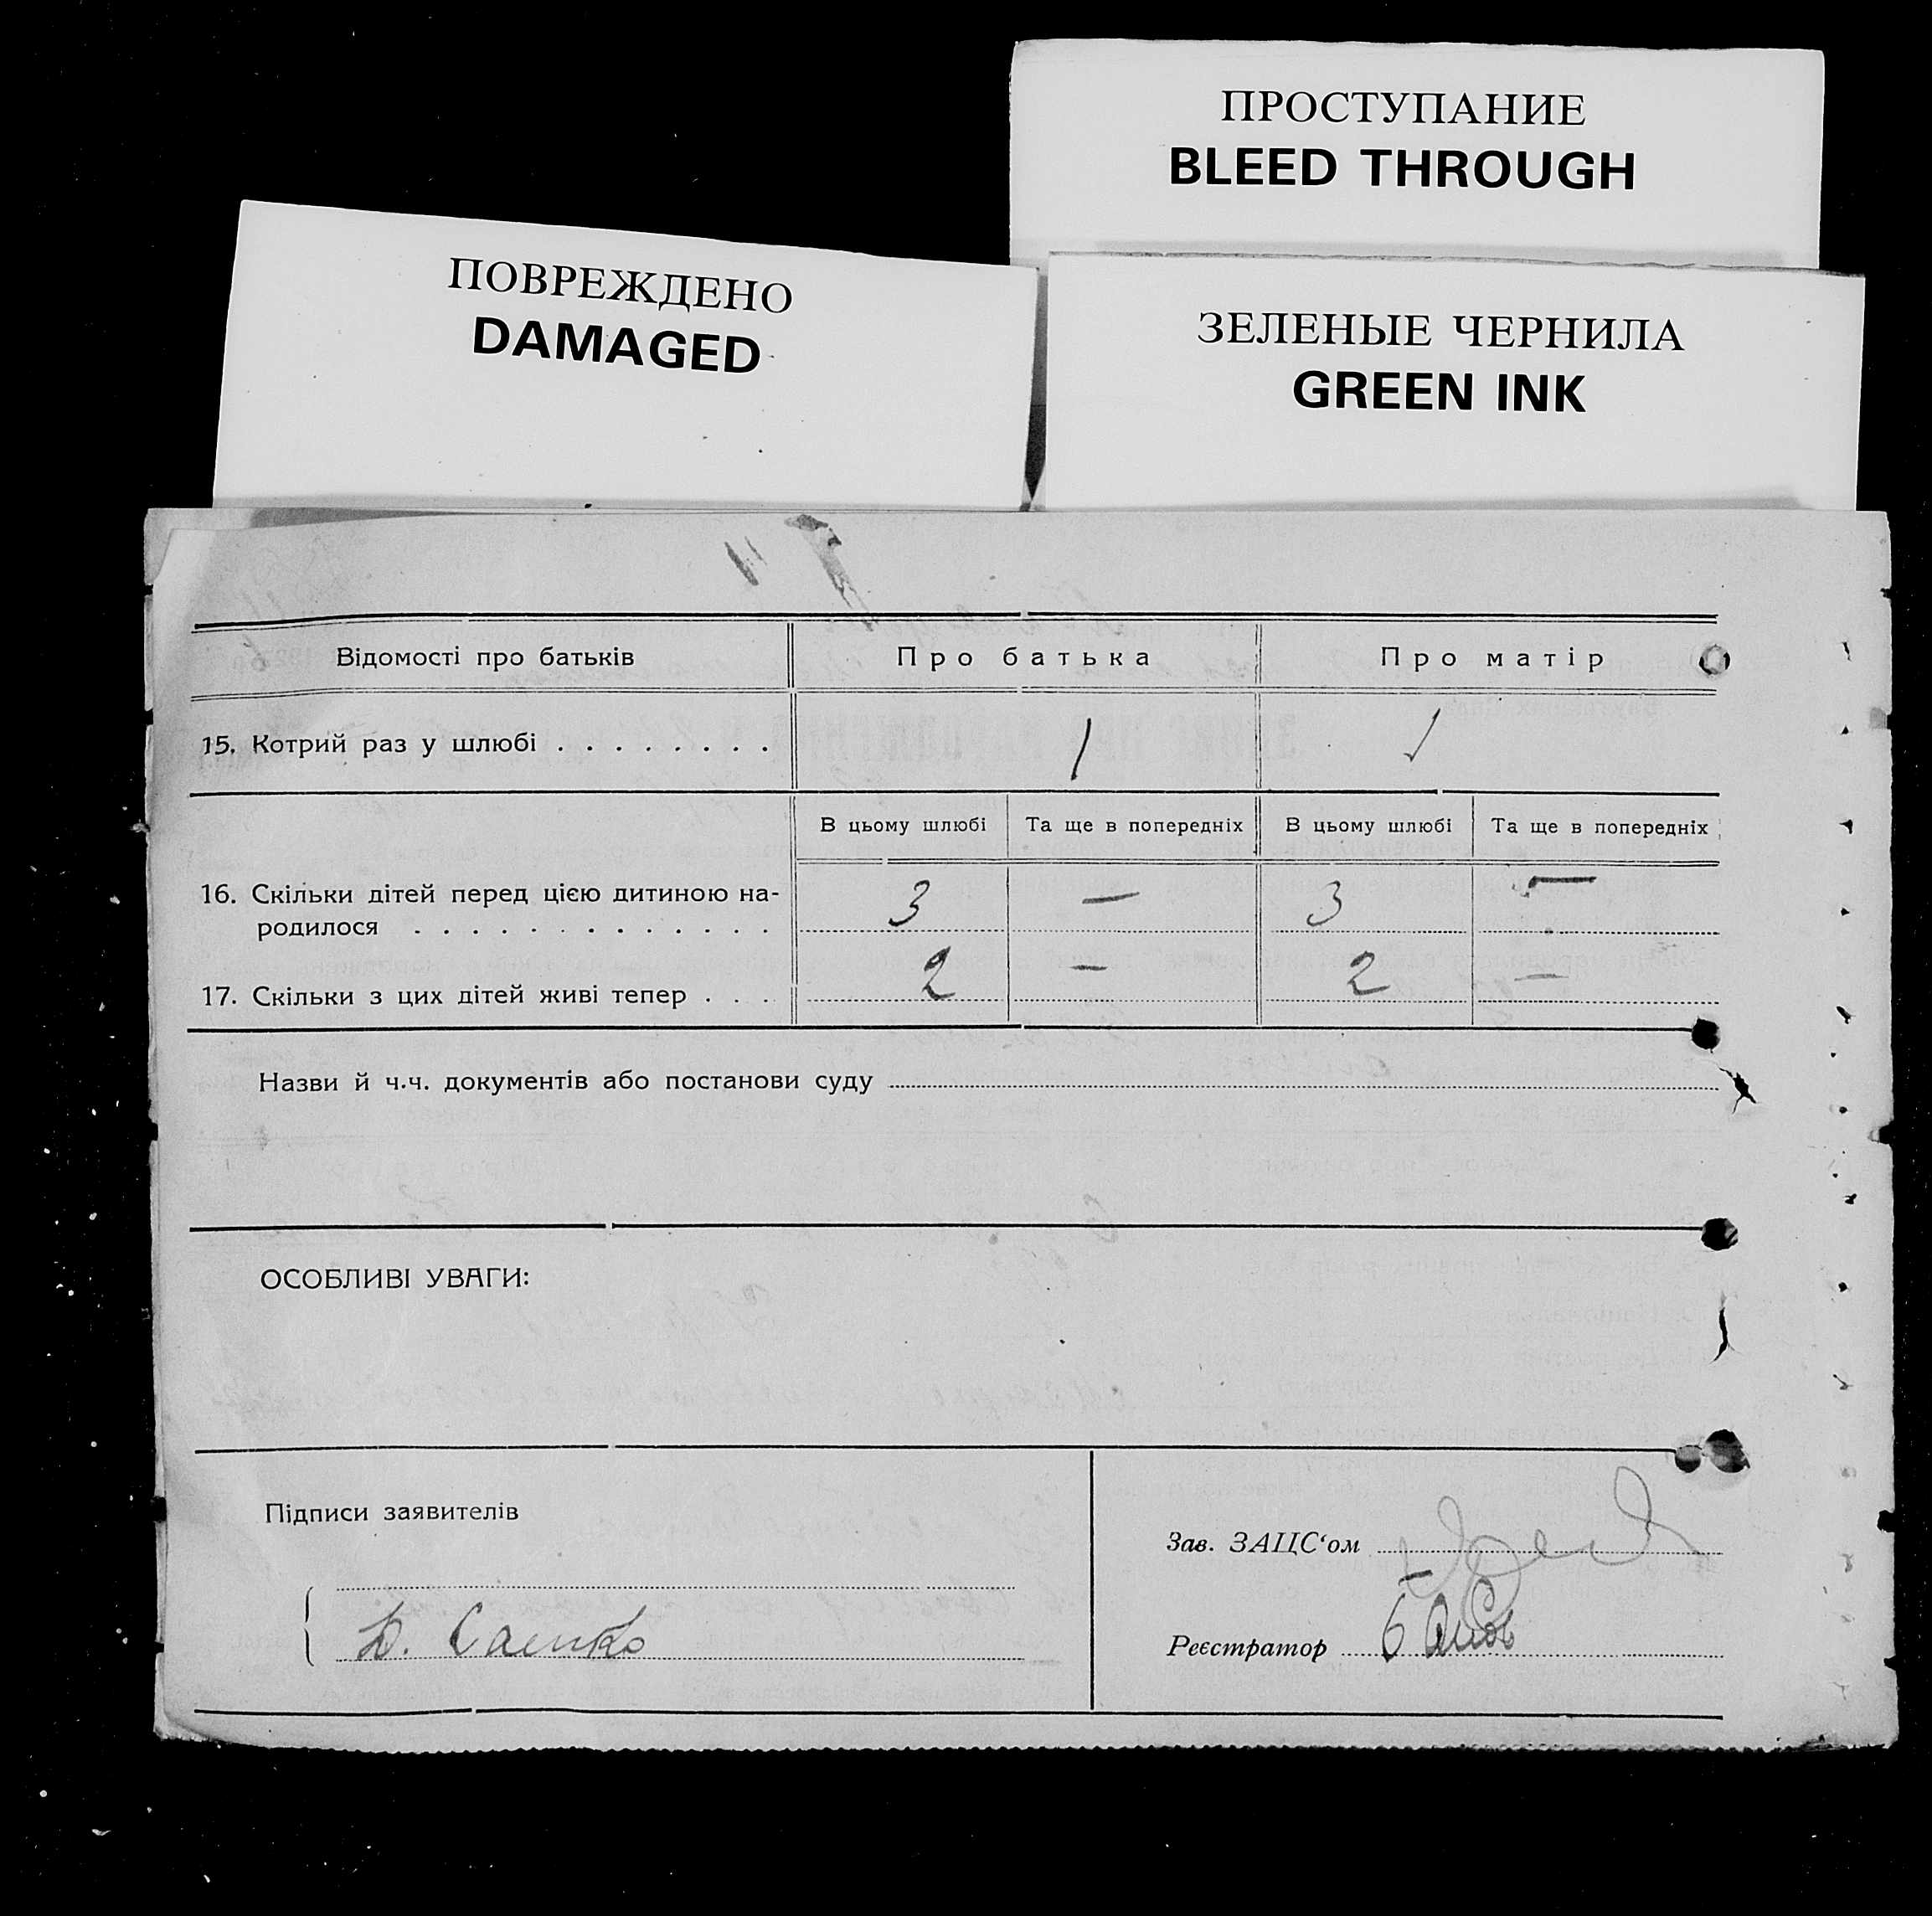 ПРОСТУПАНИЕ
BLEED THROUGH
ПОВРЕЖДЕНО
DAMAGED
ЗЕЛЕНЫЕ ЧЕРНИЛА
GREEN INK
Відомості про батьків Про батька Про матір
15. Котрий раз у шлюбі . . . . . . . . 1 1
В цьому шлюбі Та ще в попередніх В цьому шлюбі Та ще в попередніх
16. Скільки дітей перед цією дитиною на- 3 — 3 —
родилося . . . . . . . . . . . . .
17. Скільки з цих дітей живі тепер . . . 2 — 2 —
Назви й ч.ч. документів або постанови суду
ОСОБЛИВІ УВАГИ:
Підписи заявителів
Зав. ЗАЦС‘ом
Реєстратор